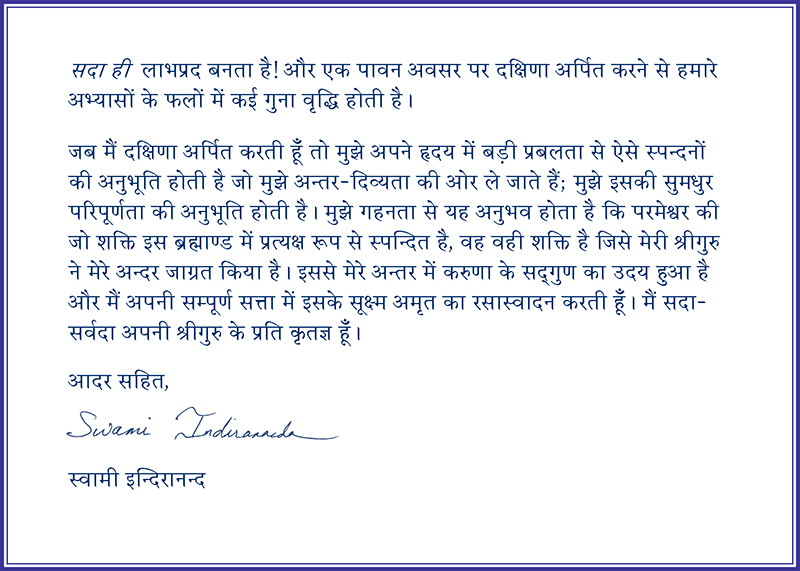 सदा ही लाभप्रद बनता है! और एक पावन अवसर पर दक्षिणा अर्पित करने से हमारे
अभ्यासों के फलों में कई गुना वृद्धि होती है।
जब मैं दक्षिणा अर्पित करती हूँ तो मुझे अपने हृदय में बड़ी प्रबलता से ऐसे स्पन्दनों
की अनुभूति होती है जो मुझे अन्तर-दिव्यता की ओर ले जाते हैं; मुझे इसकी सुमधुर
परिपूर्णता की अनुभूति होती है। मुझे गहनता से यह अनुभव होता है कि परमेश्वर की
जो शक्ति इस ब्रह्माण्ड में प्रत्यक्ष रूप से स्पन्दित है, वह वही शक्ति है जिसे मेरी श्रीगुरु
ने मेरे अन्दर जाग्रत किया है। इससे मेरे अन्तर में करुणा के सद्‌गुण का उदय हुआ है
और मैं अपनी सम्पूर्ण सत्ता में इसके सूक्ष्म अमृत का रसास्वादन करती हूँ। मैं सदा-
सर्वदा अपनी श्रीगुरु के प्रति कृतज्ञ हूँ।
आदर सहित,
Swami Indirananda
स्वामी इन्दिरानन्द